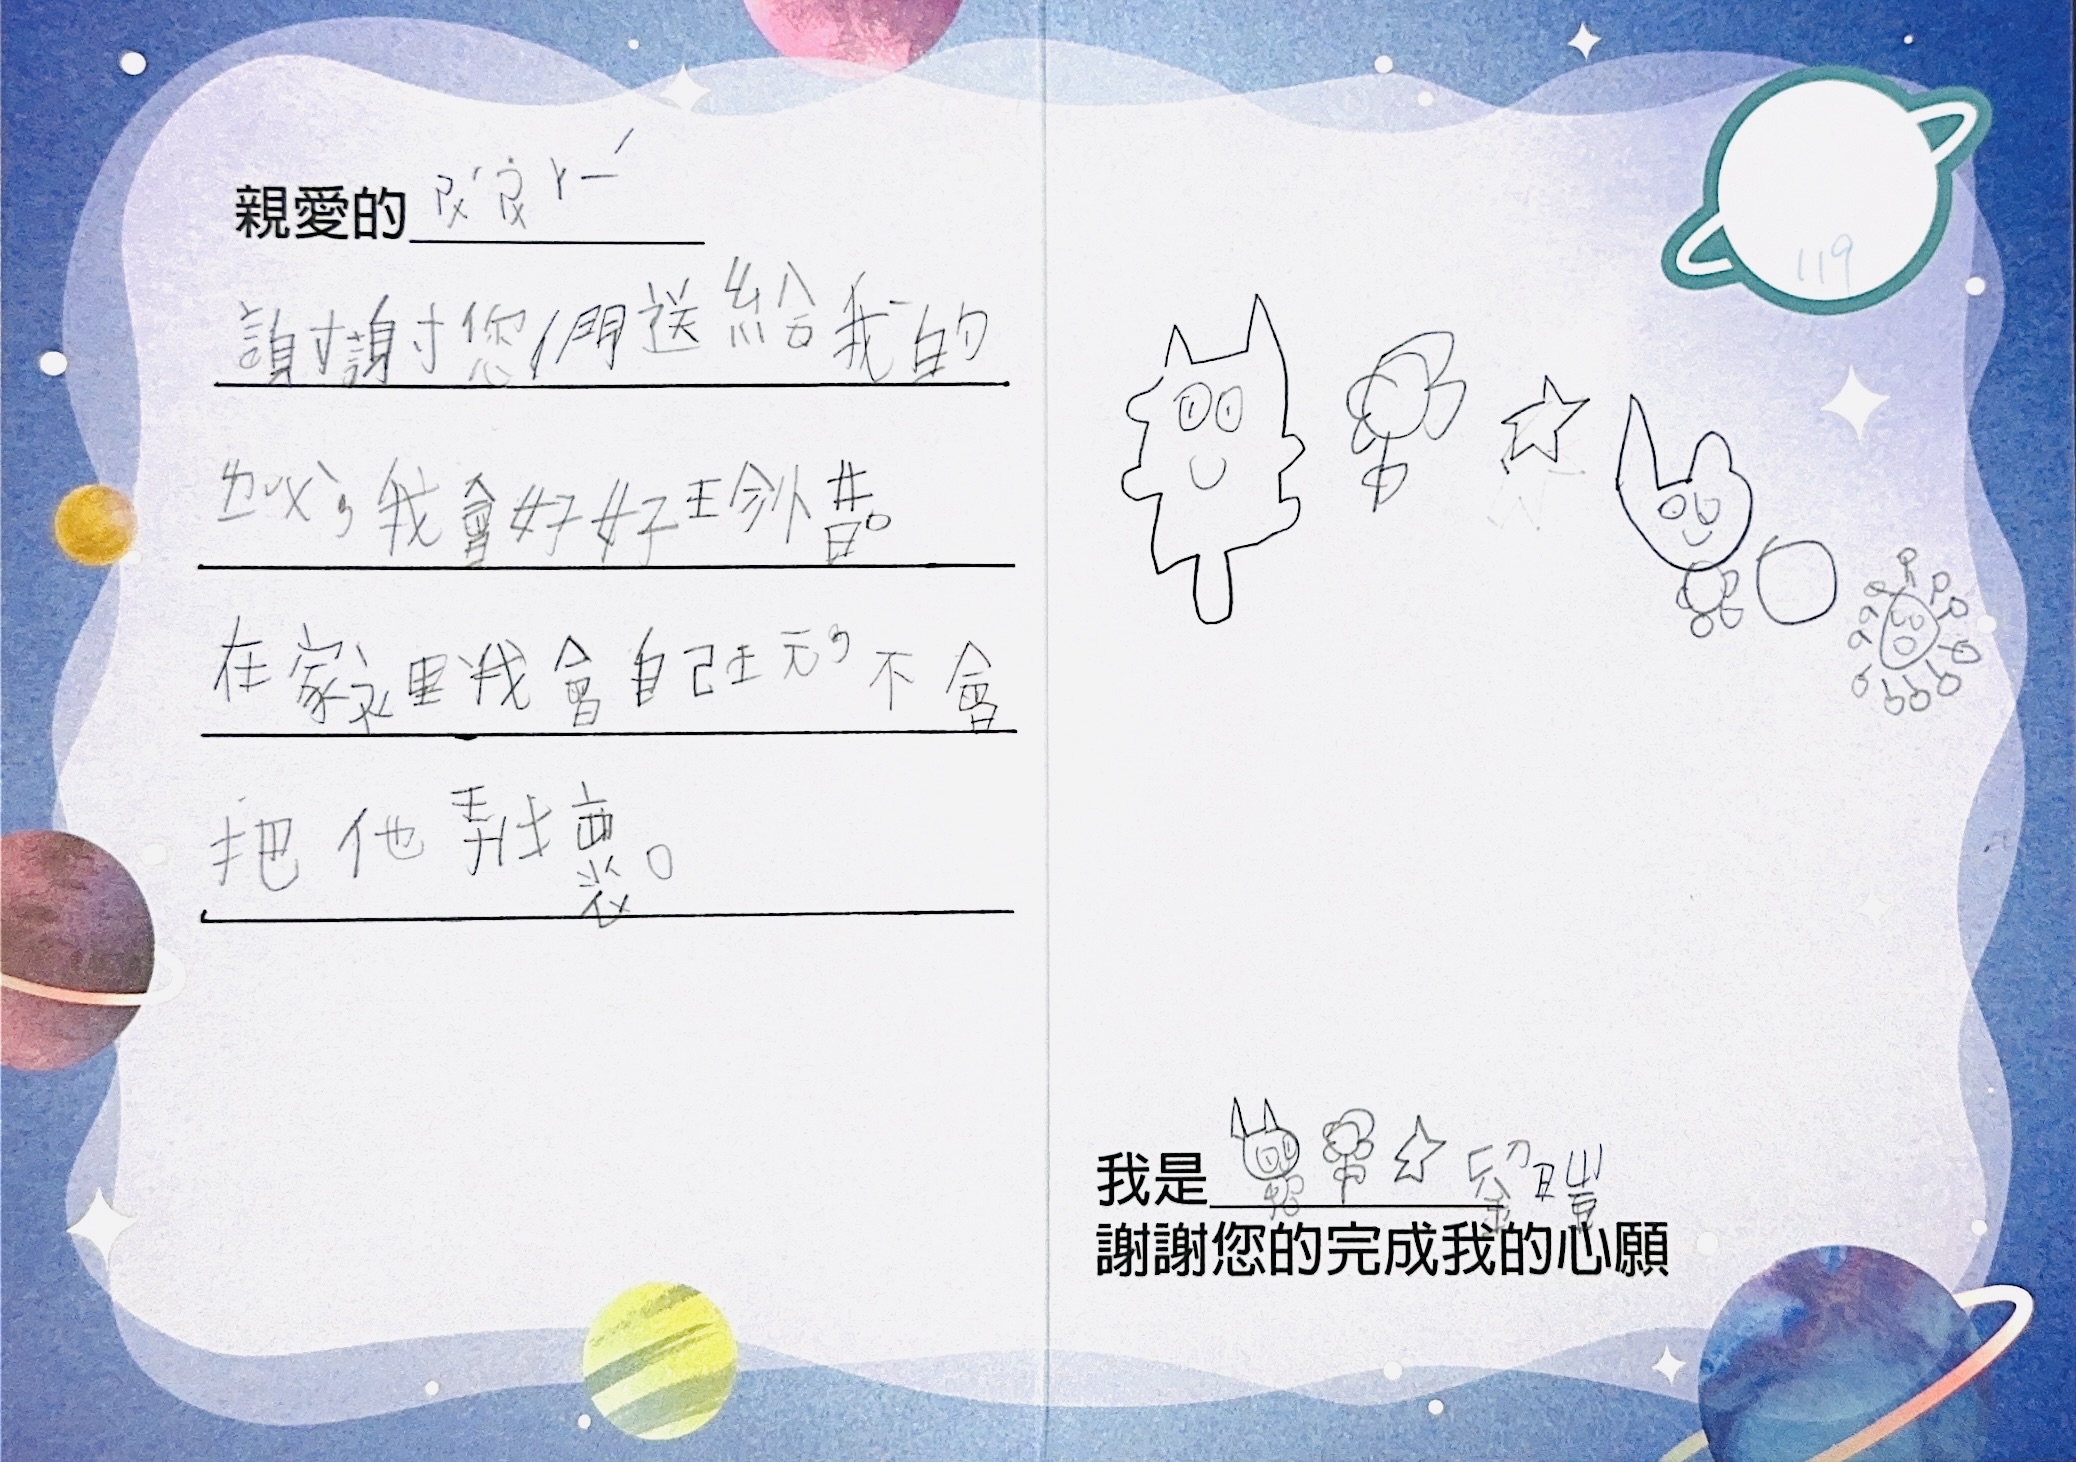 親愛的 ㄕㄨˊㄕㄨ˙ㄚ ㄧˊ
謝謝您們送給我的
ㄌㄧˇㄨˋ,我會好好珍惜。
在家裡我會自己玩,不會
把他弄壞。
119
我是 劉瞪
謝謝您的完成我的心願